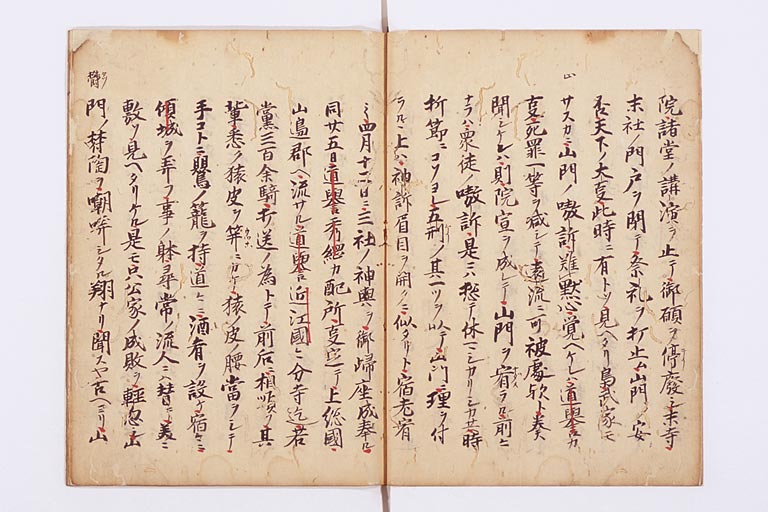 院諸堂ノ講演ヲ止テ御願ヲ停廢シ末寺
末社ノ門戸ヲ閉テ祭礼ヲ打止ム山門ノ安
否天下ノ大事此時ニ有トソ見ヘタリ武家モ
サスカ山門ノ嗷訴難默止覚ヘケレハ道譽カ
事死罪一等ヲ減シテ遠流ニ可被處歟ト奏
聞シケレハ則院宣ヲ成シテ山門ヲ宥ラル前ニ
ナラハ衆徒ノ嗷訴是ニハ愁テ休マシカリシカ共時
折節ニコソヨレ五刑ノ其一ツヲ以テ山門ニ理ヲ付
ラルヽ上ハ神訴眉目ヲ開クニ似タリト宿老宥
ミ四月十二日ニ三社ノ神輿ヲ御帰座成奉ル
同廿五日道譽秀綱カ配所事定テ上総國
山邊郡ヘ流サル道譽近江國分寺迄若
黨三百余騎打送ノ為トテ前后ニ相順フ其
輩悉ク猿皮ヲ ニカケ猿皮腰當ヲシテ
手コトニ鴬ノ籠ヲ持道々ニ酒肴ヲ設テ宿々ニ
傾城ヲ弄フ事ノ躰尋常ノ流人ニハ替リ美々
敷ソ見ヘタリケル是モ只公家ノ成敗ヲ輕忽シ山
門ノ欝陶ヲ嘲哢シタル翔ナリ聞スヤ古ヘヨリ山